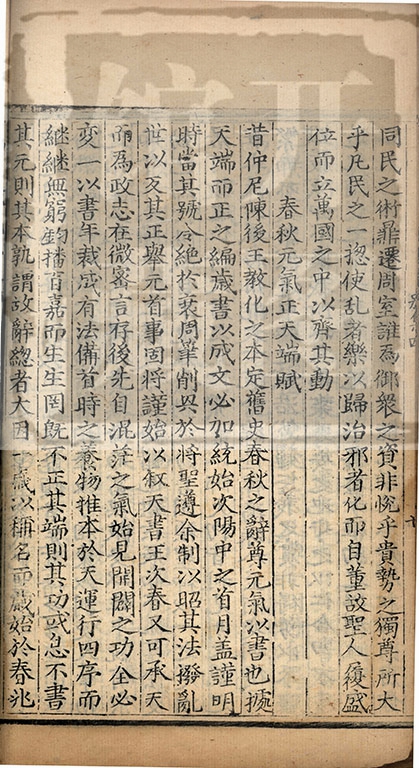 同民之術羅遷周室誰為御衆之資非恱乎貴勢之獨尊所大
乎凡民之一揔使乱者樂以歸治邪者化而自董故聖人履盛
位而立萬國之中以齊其動
春秋元氣正天端賦
昔仲尼陳後王教化之本定舊史春秋之辭尊元氣以書也據
天端而正之編歲書以成文必加統始次陽中之首月盖謹明
時當其號令絶於衰周筆削興於将聖遵余制以昭其法撥亂
世以反其正舉元首事固将謹始以叙天書王次春又可承天
而為政志在微寄言存後先自混浮之氣始見開闢之功全必
變一以書年裁成有法備首時之養物推本於天運行四序而
継継無窮鈞播百嘉而生生罔既不正其端則其功或息不書
其元則其本孰謂故辭緫者大因一歲以稱名而歲始於春兆